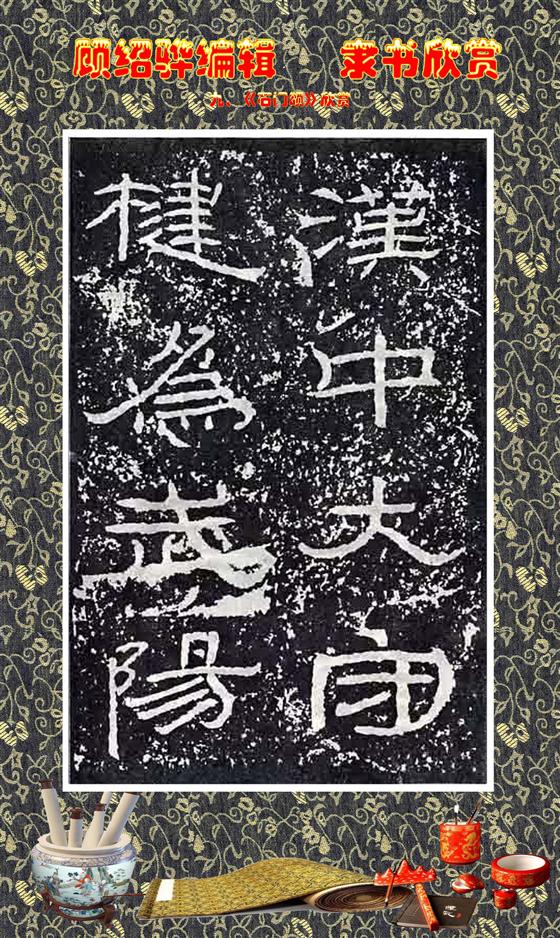 顾绍骅编辑 隶书欣赏
九、《石门颂》欣赏
漢中大守
楗為武陽